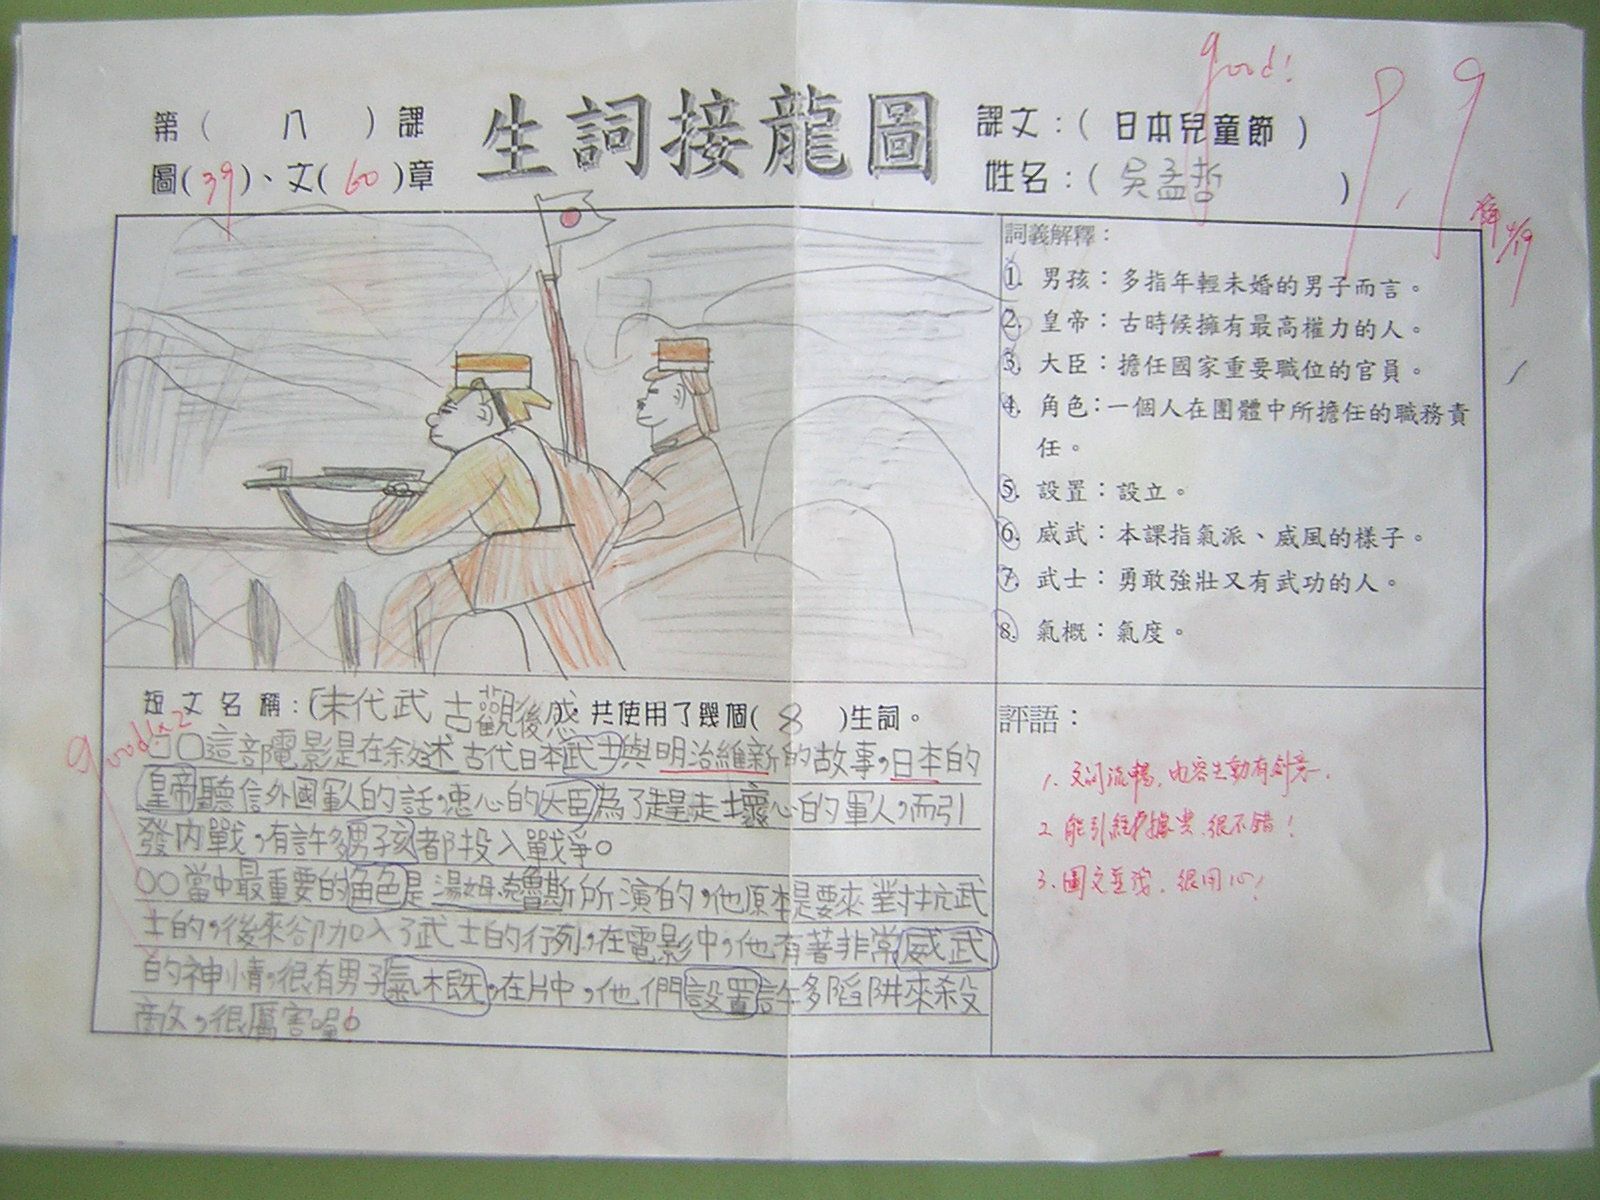 第( 八 )課
生詞接龍圖
課文:( 日本兒童節 )
good!
99
圖(39)、文(60)章
姓名:( 吳孟哲 )
詞義解釋:
1. 男孩:多指年輕未婚的男子而言。
2. 皇帝:古時候擁有最高權力的人。
3. 大臣:擔任國家重要職位的官員。
4. 角色:一個人在團體中所擔任的職務責
任。
5. 設置:設立。
6. 威武:本課指氣派、威風的樣子。
7. 武士:勇敢強壯又有武功的人。
8. 氣概:氣度。
短文名稱:(末代武士觀後感 共使用了幾個( 8 )生詞。
good!x2
○○這部電影是在敘述古代日本武士與明治維新的故事,日本的
皇帝聽信外國軍人的話,忠心的大臣為了趕走壞心的軍人,而引
發內戰,有許多男子孩都投入戰爭。
○○當中最重要的角色是湯姆克魯斯所演的,他原本是要來對抗武
士的,後來卻加入了武士的行列,在電影中,他有著非常威武
的神情,很有男子氣概,在片中,他們設置許多陷阱來殺
敵,很厲害喔!
評語:
1. 文詞流暢,內容生動有創意。
2. 能引經據典,很不錯!
3. 圖文並茂,很用心!